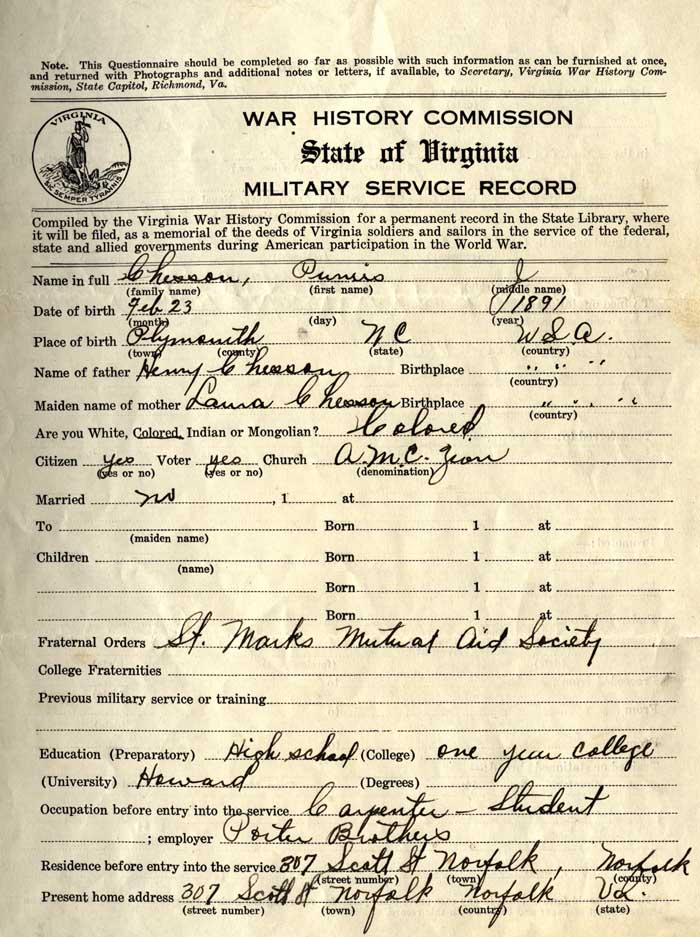 Note. This Questionnaire should be completed so far as possible with such information as can be furnished at once,
and returned with Photographs and additional notes or letters, if available, to Secretary, Virginia War History Com-
mission, State Capitol, Richmond, Va.
VIRGINIA
SIC SEMPER TYRANNIS
WAR HISTORY COMMISSION
State of Virginia
MILITARY SERVICE RECORD
Compiled by the Virginia War History Commission for a permanent record in the State Library, where
it will be filed, as a memorial of the deeds of Virginia soldiers and sailors in the service of the federal,
state and allied governments during American participation in the World War.
Name in full Chesson, J
(family name) (first name) (middle name)
Date of birth Feb 23 1891
(month) (day) (year)
Place of birth Plymouth NC USA.
(town) (county) (state) (country)
Name of father Henry Chesson Birthplace " " "
(country)
Maiden name of mother Laura Chesson Birthplace " " "
(country)
Are you White, Colored, Indian or Mongolian? Colored
Citizen yes Voter yes Church A.M.E. Zion
(yes or no) (yes or no) (denomination)
Married no , 1 at
To Born 1 at
(maiden name)
Children Born 1 at
(name)
Born 1 at
Born 1 at
Fraternal Orders St. Marks Mutual Aid Society
College Fraternities
Previous military service or training
Education (Preparatory) High school (College) one year college
(University) Howard (Degrees)
Occupation before entry into the service Carpenter - Student
; employer Porter Brothers
Residence before entry into the service 307 Scott St Norfolk, Norfolk
(street number) (town) (county)
Present home address 307 Scott St Norfolk Norfolk Va.
(street number) (town) (country) (state)